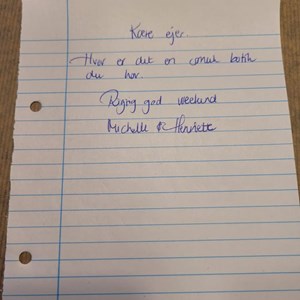 Kære ejer
Hvor er det en smuk butik
du har.
Rigtig god weekend
Michelle & Henriette